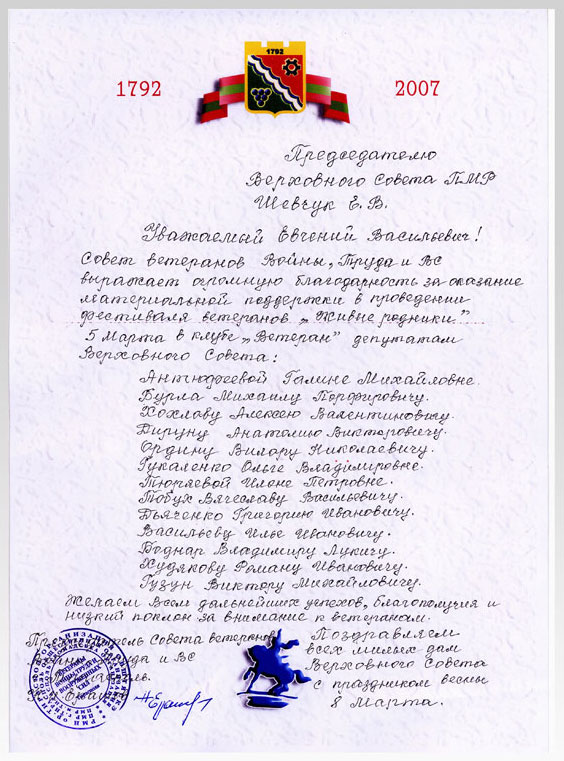 1792
1792 2007
Председателю
Верховного Совета ПМР
Шевчук Е.В.
Уважаемый Евгений Васильевич!
Совет ветеранов Войны, Труда и ВС
выражает огромную благодарность за оказание
материальной поддержки в проведении
фестиваля ветеранов „Живые родники”
5 Марта в клубе „Ветеран” депутатам
Верховного Совета:
Антюфеевой Галине Михайловне.
Бурла Михаилу Порфировичу.
Хохлову Алексею Валентиновичу.
Бируну Анатолию Викторовичу.
Ордину Вилору Николаевичу.
Гукаленко Ольге Владимировне.
Тюряевой Илоне Петровне.
Тобух Вячеславу Васильевичу.
Дьяченко Григорию Ивановичу.
Васильеву Илье Ивановичу.
Боднар Владимиру Лукичу.
Худякову Роману Ивановичу.
Гузун Виктору Михайловичу.
Желаем Всем дальнейших успехов, благополучия и
низкий поклон за внимание к ветеранам.
Совета ветеранов
Труда и ВС
Поздравляем
всех милых дам
Верховного Совета
с праздником весны
8 Марта.